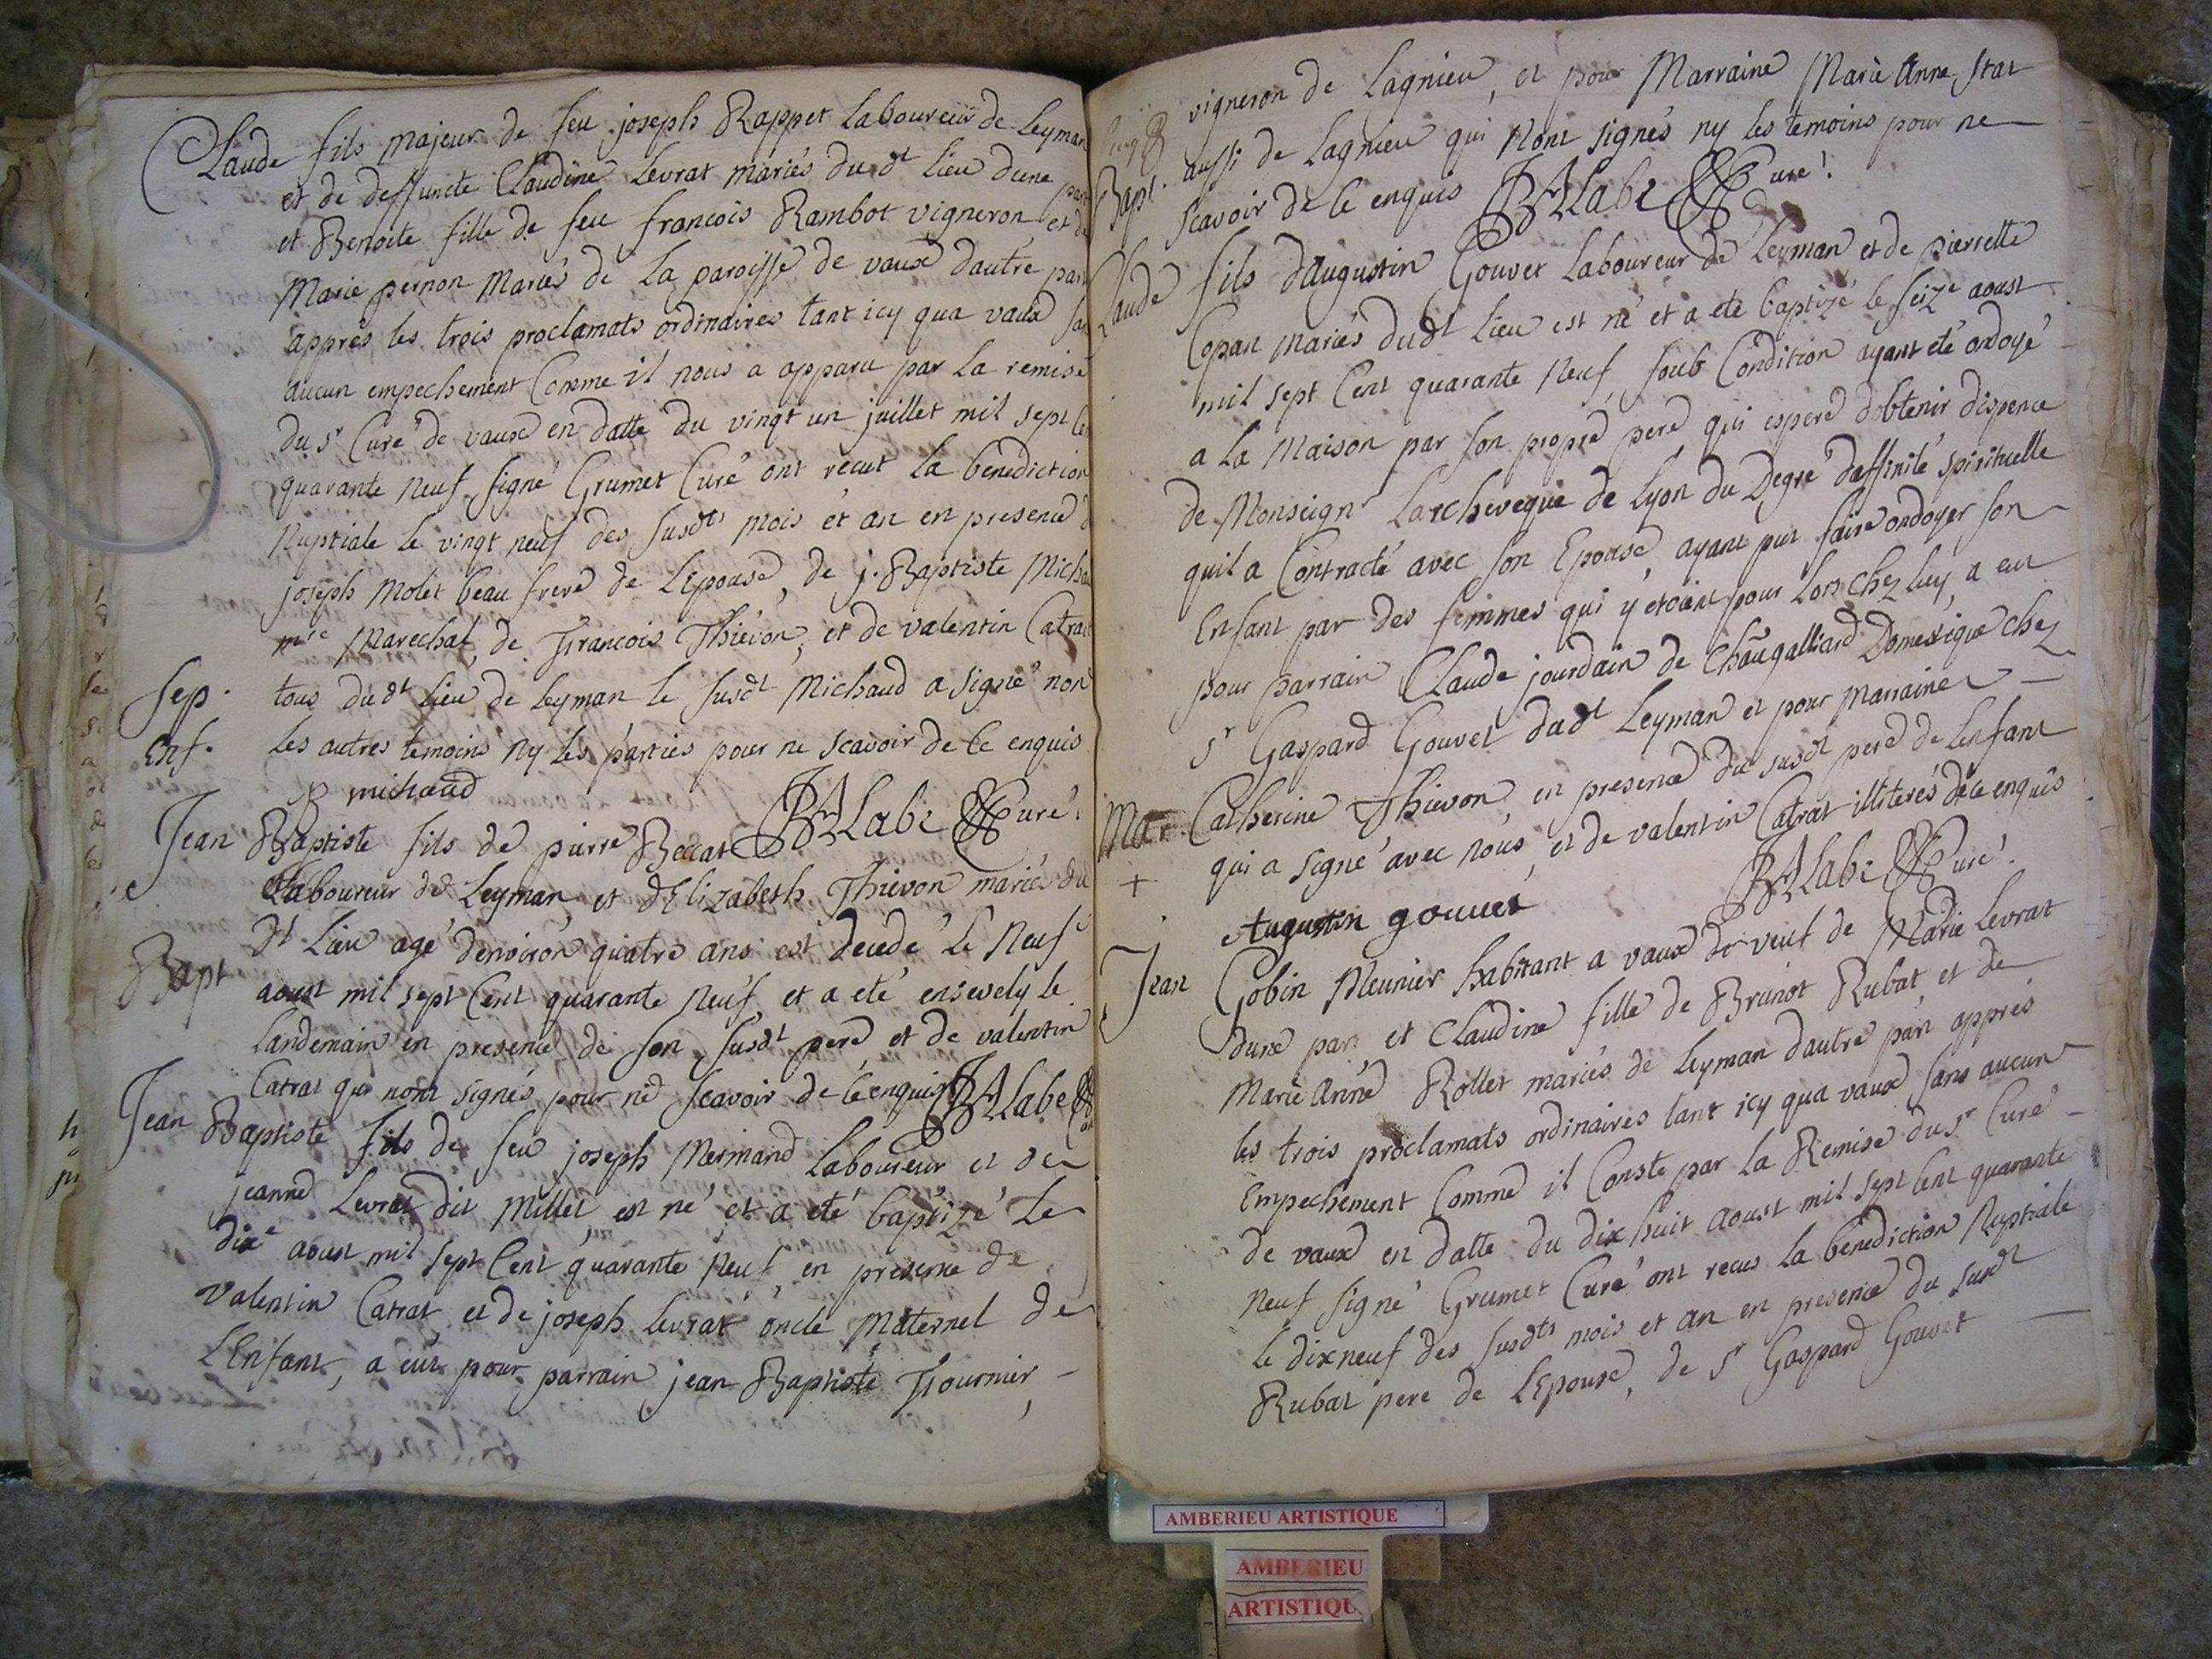 Claude fils majeur de feu joseph Rappet laboureur de Leyman
et de deffuncte Claudine Levrat mariés du dt lieu dune part
et Benoite fille de feu francois Rambot vigneron et de
Marie pernon Mariés de La paroisse de vaux dautre part
apprés les trois proclamats ordinaires tant icy qua vaux
aucun empechement Comme il nous a apparu par La remise
du sr Curé de vaux en datte du vingt un juillet mil sept
quarante neuf signé Grumet Curé ont recut La bénediction
Nuptiale le vingt neuf des susdts mois et an en presence
joseph Molet beau frere de L'Epouse, de j. Baptiste Michaud
mre Marechal, de Francois Thiévon, et de valentin Catrat
tous dudt lieu de leyman le susdt Michaud a signé non
les autres temoins ny les parties pour ne scavoir de ce enquis
michaud
Labe Curé
Sep.
Enf.
Jean Baptiste fils de pierre Beccat
Laboureur de Leyman et d'Elizabeth Thiévon mariés du
dt Lieu agé denviron quatre ans est décedé le Neuf
aoust mil sept Cent quarante Neuf et a eté ensevely le
landemain en presence de son susdt pere et de valentin
Catrat qui nont signés pour ne scavoir de ce enquis Labe
Bapt
Jean Baptiste fils de feu joseph Mermand Laboureur et de
jeanne Levrat dit Millet est né et a été baptizé Le
dixe aoust mil sept Cent quarante Neuf en presence de
Valentin Catrat et de joseph Levrat oncle Maternel de
L'Enfant, a eut pour parrain jean Baptiste Fournier,
vigneron de Lagnieu, et pour Marraine Marie Anne Stat
aussi de Lagnieu qui Nont signés ny les temoins pour ne
scavoir de ce enquis Labe Curé
Bapt.
Claude fils d'Augustin Gouvet Laboureur de Leyman et de pierrette
Copan mariés dudt Lieu est né et a eté baptizé le seize aoust
mil sept Cent quarante Neuf, soub Condition ayant eté ondoyé
a La Maison par son propre pere qui espere dobtenir dispence
de Monseignr Larcheveque de Lyon du Degré daffinité spirituelle
quil a Contracté avec son Epouse, ayant put faire ondoyer son
Enfant par des femmes qui y etoient pour Lors chez luy, a eut
pour parrain Claude jourdain de Chaugalliard Domestique chez
sr Gaspard Gouvet dudt Leyman et pour marraine
Catherine Thievon en presence du susdt pere de Lenfant
qui a signé avec nous et de valentin Catrat illiterés de ce enquis
Augustin gouvet
Labe Curé
Mar.
+
Jean Gobin Meunier habitant a vaux veuf de Marie Levrat
dune part et Claudine fille de Brunot Rubat et de
Marie Anne Rollet mariés de Leyman dautre part apprés
les trois proclamats ordinaires tant icy qua vaux sans aucun
Empechement Comme il Conste par La Remise du sr Curé
de vaux en datte du dix huit aoust mil sept Cent quarante
Neuf signé Grumet Curé ont recus la benediction Nuptiale
le dixneuf des susdts mois et an en presence du susdt
Rubat pere de L'Epouse, de sr Gaspard Gouvet
AMBERIEU ARTISTIQUE
AMBERIEU
ARTISTIQU